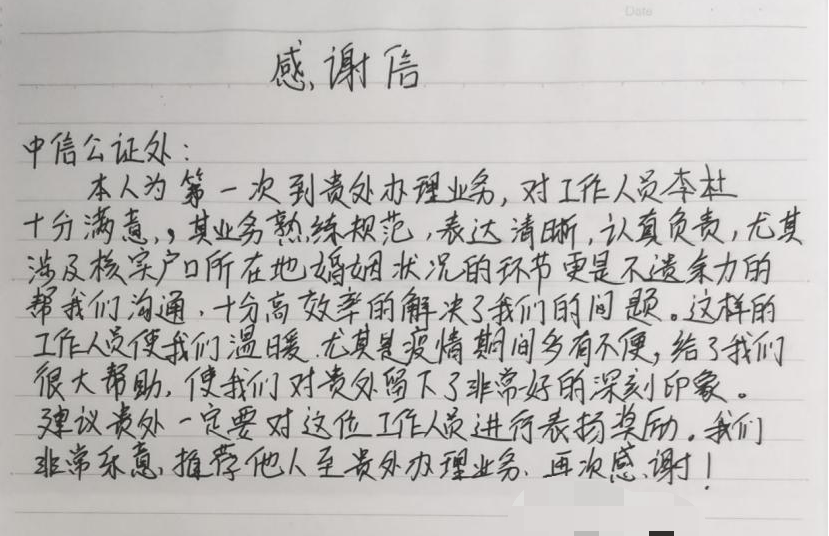 Date
感谢信
中信公证处：
本人为第一次到贵处办理业务，对工作人员李杜
十分满意，，其业务熟练规范，表达清晰，认真负责，尤其
涉及核实户口所在地婚姻状况的环节更是不遗余力的
帮我们沟通，十分高效率的解决了我们的问题。这样的
工作人员使我们温暖，尤其是疫情期间多有不便，给了我们
很大帮助，使我们对贵处留下了非常好的深刻印象。
建议贵处一定要对这位工作人员进行表扬奖励。我们
非常乐意，推荐他人至贵处办理业务，再次感谢！